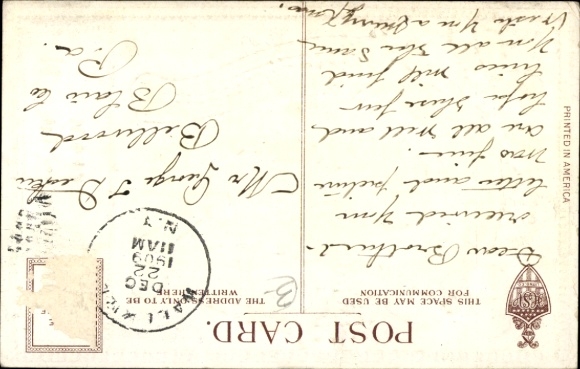 POST CARD.
THIS SPACE MAY BE USED
FOR COMMUNICATION
THE ADDRESS ONLY TO BE
WRITTEN HERE
DEC
22
1909
11AM
N.Y.
Dear Brother.
received your
letter and picture
was fine.
are all well and
hope these few
lines will find
you all the same
Wish you a merry Xmas
Mr George T
Bellwood
Blair Co
Pa.
PRINTED IN AMERICA